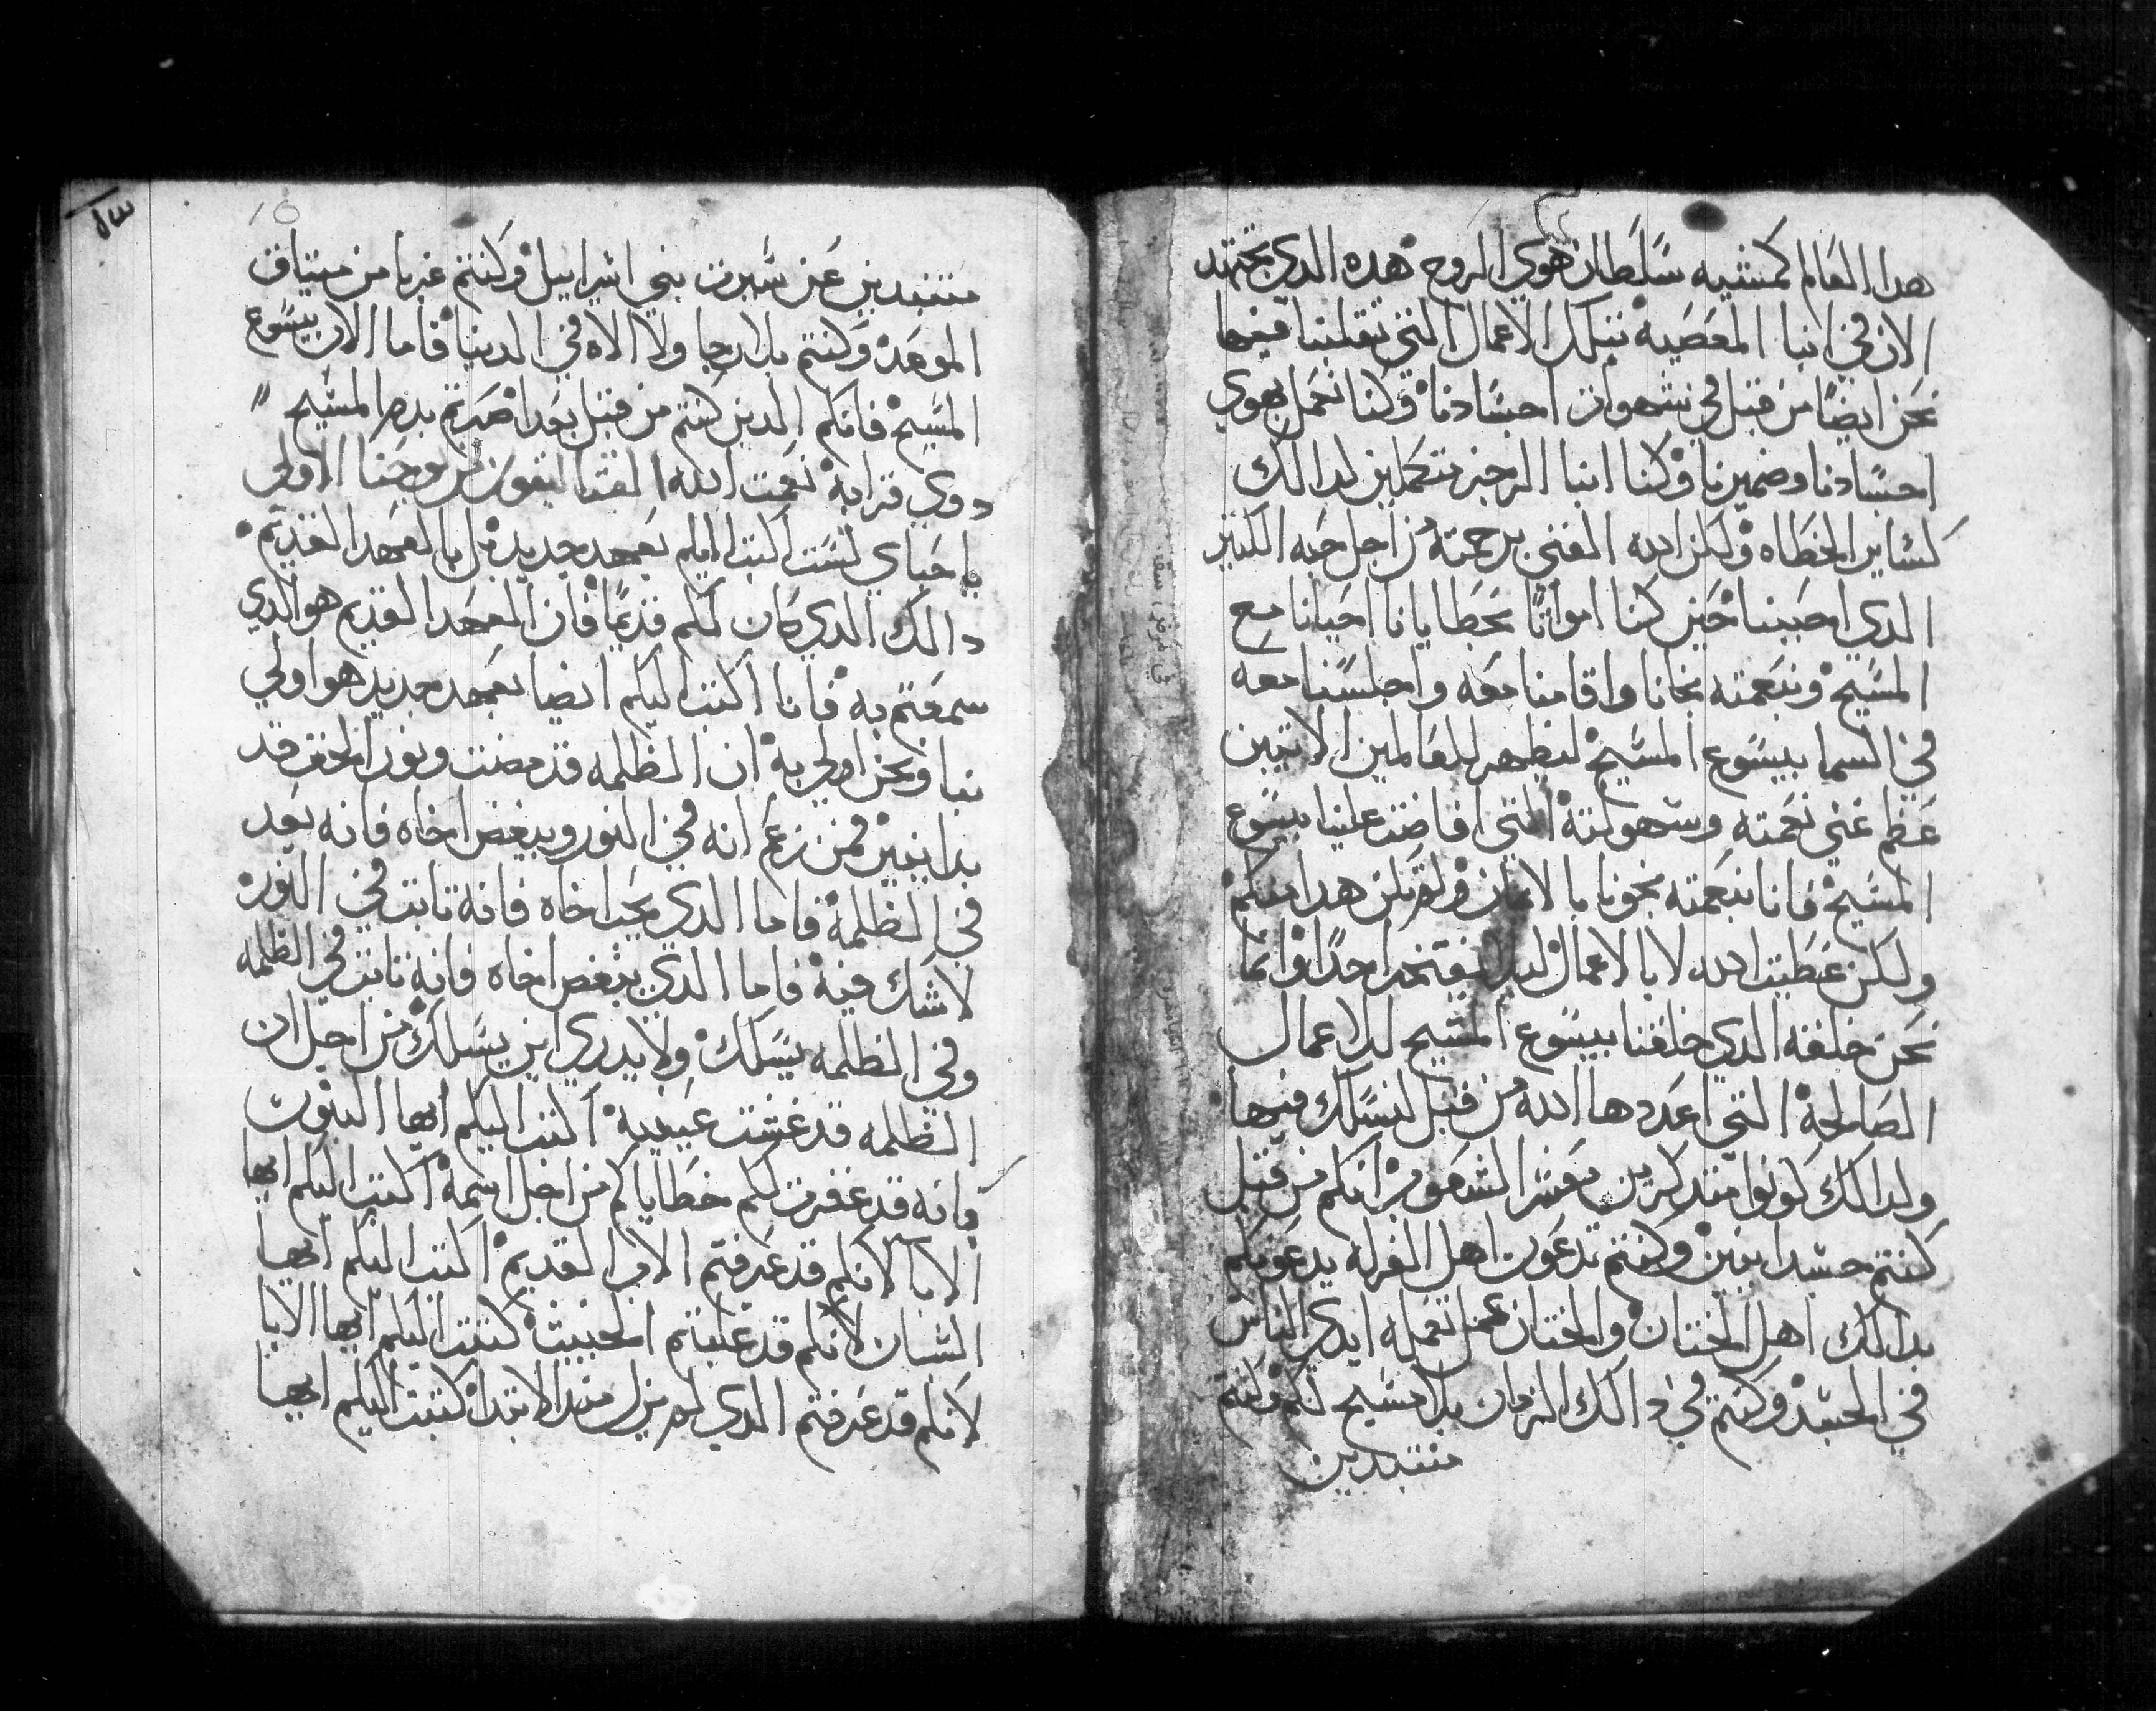 هدا العالم كمشيه سلطان هوي الروح هده الدي تجتهد
الان في ابنا المعصيه بتلك الاعمال التي تقلبنا فيها
نحن ايضا من قبل في شهوات اجسادنا وكنا نعمل بهوي
اجسادنا وضميرنا وكنا ابنا الرجز متحملين لدالك
كساير الخطاه ولكن الله الغني برحمته من اجل حبه الكبير
الدي احببنا حين كنا امواتا بخطايانا احيانا مع
المسيح وبنعمته نجانا واقامنا معه واجلسنا معه
في السما بيسوع المسيح ليظهر للعالمين الاتيين
عظم غني نعمته وسهولته التي افاضت علينا بيسوع
المسيح فانا بنعمته نجونا بالايمان ولم يكن هدا منكم
ولكن عطيت الله لا بالاعمال ليلا يفتخر احدا وانما
نحن خلقه الدي خلقنا بيسوع المسيح للاعمال
الصالحة التي اعددها الله من قبل لنسلك فيها
ولدالك كونوا متدكرين معشر الشعوب انكم من قبل
كنتم جسدانيين وكنتم تدعون اهل الغرله يدعونكم
بدالك اهل الختان والختان عمل تعمله ايدي الناس
في الجسد وكنتم في دالك الزمان بلا مسيح لكم وكنتم
متبددين
10
متبددين عن سيرت بني اسراييل وكنتم غربا من ميتاق
الموعد وكنتم بلا رجا ولا الاه في الدنيا فاما الان بيسوع
المسيح فانكم الدين كنتم من قبل بعدا صرتم بدم المسيح
دوي قرابة نعمت الله القتاليقون من يوحنا الاولي
يا احباي لست اكتب اليكم بعهد جديد بل بالعهد القديم
دالك الدي كان لكم قديما فان العهد القديم هو الدي
سمعتم به فانا اكتب اليكم ايضا بعهد جديد هو اولي
بنا ونحن اولي به ان الظلمه قد مضت ونور الحق قد
بدا يبين فمن زعم انه في النور ويبغض اخاه فانه بعد
في الظلمة فاما الدي يحب اخاه فانه تابت في النور
لاشك فيه فاما الدي يبغض اخاه فانه تابت في الظلمه
وفي الظلمه يسلك ولا يدري اين يسلك من اجل ان
الظلمه قد غشت عينيه اكتب اليكم ايها البنون
فانه قد غفرت لكم خطاياكم من اجل اسمه اكتب اليكم ايها
الابا لانكم قد عرفتم الاب القديم اكتب اليكم ايها
الشبان لانكم قد غلبتم الخبيث كتبت اليكم ايها الابا
لانكم قد عرفتم الدي لم يزل مند الابتدا كتبت اليكم ايها